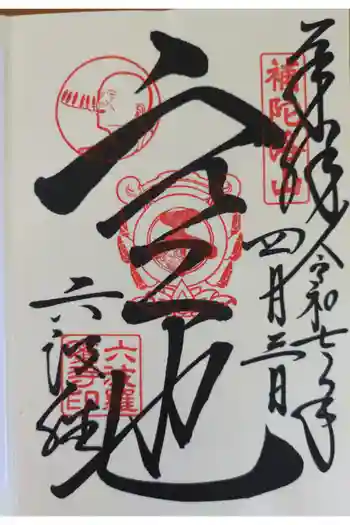 奉拝 令和七年
四月三日
補陀洛山
空也
六波羅
六波羅
蜜寺印